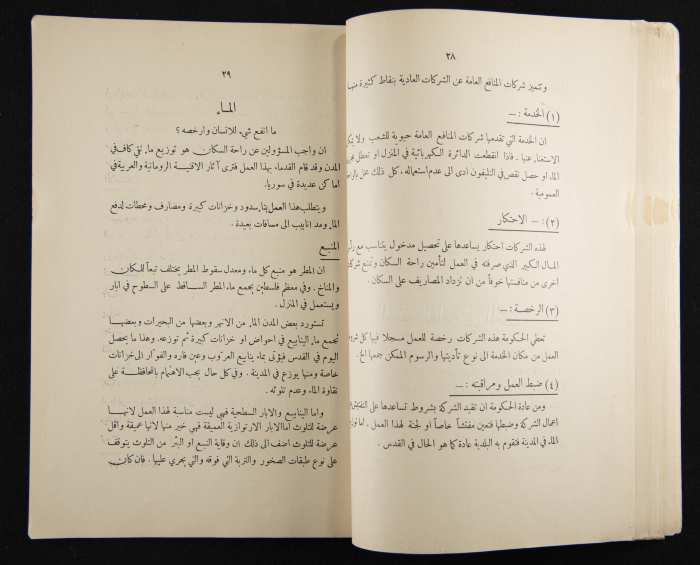 ٢٨
وتتميز شركات المنافع العامة عن الشركات العادية بنقاط كثيرة منها
(١) الخدمة : —
ان الخدمة التي تقدمها شركات المنافع العامة حيوية للشعب ولا يمكن
الاستغناء عنها . فاذا انقطعت الدائرة الكهربائية في المنزل او تعطل مجرى
الماء او حصل نقص في التليفون ادى الى عدم استعماله ، كل ذلك مخل بالراحة
العمومية .
(٢) : — الاحتكار
لهذه الشركات احتكار يساعدها على تحصيل مدخول يتناسب مع رأس
المال الكبير الذي صرفته في العمل لتأمين راحة السكان وتمنع شركات
اخرى من منافستها خوفاً من ان تزداد المصاريف على السكان .
(٣) الرخصة : —
تعطي الحكومة هذه الشركات رخصة للعمل مسجلا فيها كل شروط
العمل من مكان الخدمة الى نوع تأديتها والرسوم الممكن جمعها الخ .
(٤) ضبط العمل ومراقبته : —
ومن عادة الحكومة ان تقيد الشركة بشروط تساعدها على التفتيش
اعمال الشركة وضبطها فتعين مفتشاً خاصاً او لجنة لهذا العمل . اما توزيع
الماء في المدينة فتقوم به البلدية عادة كما هو الحال في القدس .
٢٩
الماء
ما انفع شيء للانسان وارخصه ؟
ان واجب المسؤولين عن راحة السكان هو توزيع ماء نقي كاف في
المدن وقد قام القدماء بهذا العمل فنرى آثار الاقنية الرومانية والعربية في
اماكن عديدة في سوريا .
ويتطلب هذا العمل بناء سدود وخزانات كبيرة ومصارف ومحطات لدفع
الماء ومد انابيب الى مسافات بعيدة .
المنبع
ان المطر هو منبع كل ماء ومعدل سقوط المطر يختلف تبعاً للمكان
والمناخ . وفي معظم فلسطين يجمع ماء المطر الساقط على السطوح في ابار
ويستعمل في المنزل .
تستورد بعض المدن الماء من الانهر وبعضها من البحيرات وبعضها
تجمع ماء الينابيع في احواض او خزانات كبيرة ثم توزعه . وهذا ما يحصل
اليوم في القدس فيؤتى بماء ينابيع العروب وعين فاره والفوار الى خزانات
خاصة ومنها يوزع في المدينة . وفي كل حال يجب الاهتمام بالمحافظة على
نقاوة الماء وعدم تلوثه .
واما الينابيع والابار السطحية فهي ليست مناسبة لهذا العمل لانها
عرضة للتلوث اما الابار الارتوازية العميقة فهي خير منها لانها عميقة واقل
عرضة للتلوث اضف الى ذلك ان وقاية النبع او البئر من التلوث يتوقف
على نوع طبقات الصخور والتربة التي فوقه والتي يجري عليها . فان كان